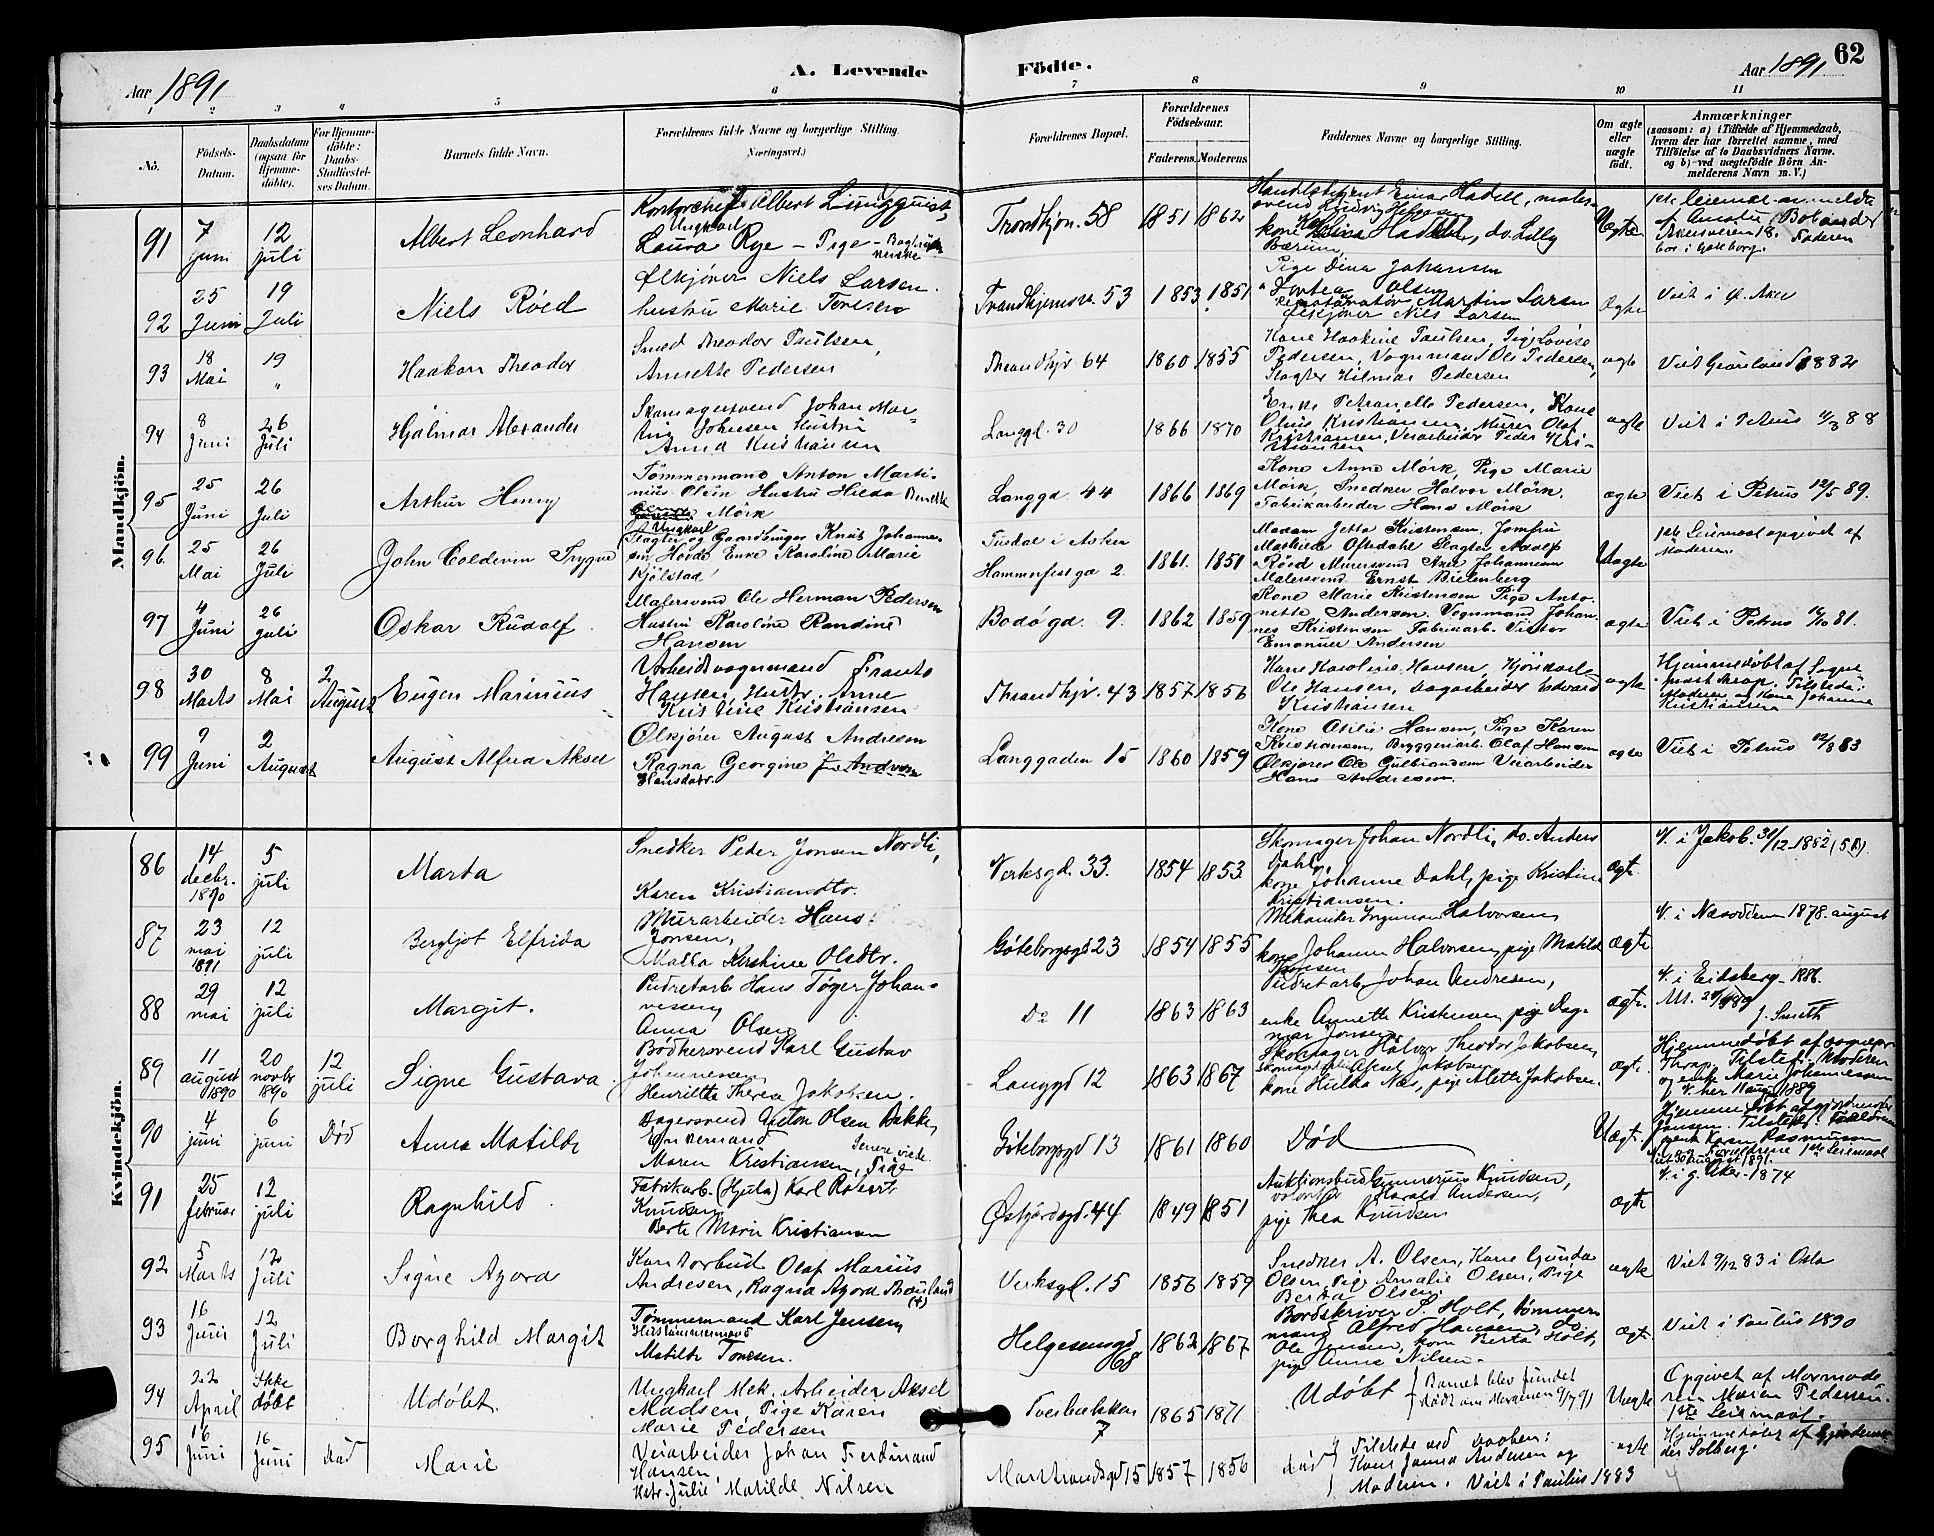 Aar 1891
A. Levende Födte.
Aar 1891
62
1 2 3 4 5 6 7 8 9 10 11
No.
Födsels-Datum.
Daabsdatum (ogsaa for Hjemme-döbte).
For Hjemme-döbte: Daabs-Stadfæstel-ses Datum.
Barnets fulde Navn.
Forældrenes fulde Navne og borgerlige Stilling. Næringsvei.)
Forældrenes Bopæl.
Forældrenes Födselsaar.
Faderens. Moderens.
Faddernes Navne og borgerlige Stilling.
Om ægte eller uægte födt.
Anmærkninger
(saasom: a) i Tilfælde af Hjemmedaab, hvem der har forrettet samme, med Tilföielse af to Daabsvidners Navne. og b) ved uægtefödte Börn An-melderens Navn m. V.)
Mandkjön.
91 7 juni 12 juli Albert Leonhard
Ungkarl
Laura Rye - Pige
Trondhjm. 58 1851 1862
Uægte
92 25 Juni 19 Juli Niels Röed
Ølkjörer Niels Larsen.
hustru Marie Toresen
Trondhjemsv. 53 1853 1851
Pige Dina Johansen
Martin Larsen
Ølkjörer Niels Larsen
Ægte
Viet i Ø. Aker
93 18 Mai 19 " Haakon Theodor
Smed Theodor Paulsen,
Annette Pedersen
Throndhjv 64 1860 1855
Kone Haakine Paulsen, Pige Lovise
Pedersen, Vognmand Ole Pedersen,
Slagter Hilmar Pedersen
ægte
Viet Grönland 1882
94 8 Juni 26 Juli Hjalmar Alexander
Skomagersvend Johan Mar-
tin Johnsen Hustru
Anna Kristiansen
Langgd. 30 1866 1870
Enke Petronelle Pedersen, Kone
Oline Kristiansen, Murer Olaf
Kristiansen, Veiarbeider Peder Kri-
stiansen
ægte
Viet i Petrus 88
95 25 Juni 26 Juli Arthur Henry
Tömmermand Anton Marti-
nius Olsen Hustru Hilda Benette
Mörk
Langgd 44 1866 1869
Kone Anne Mörk, Pige Marie
Mörk, Snedker Halvor Mörk,
Fabrikarbeider Hans Mörk
ægte
Viet i Petrus 12/5 89.
96. 25 Mai 26 Juli John Coldevin Trygve
Ungkarl
Slagter og Gaardbruger Knut Johanne-
sen Hovde Enke Karoline Marie
Kjölstad
Hammerfestga 2. 1861. 1851
Madam Jetta Kristensen, Jomfru
Mathilde Oftedahl Slagter Adolf
Röed Murersvend Axel Johannesen
Malersvend Ernst Bielenberg
Uægte
1ste Leiermaal opgivet af
Moderen.
97 4 Juni 26 juli Oskar Rudolf
Malersvend Ole Herman Pedersen
Hustru Karoline Randine
Hansen
Bodögd. 9. 1862 1859
Kone Marie Kristensen Pige Anto-
nette Andersen, Vognmand Johan-
nes Kristensen Fabrikarb. Victor
Emanuel Andersen
ægte
Viet i Petrus 81.
98 30 Marts 8 Mai 2 August Eugen Marinius
Arbeidsvognmand Frants
Hansen, Hustr. Anne
Kristine Kristiansen
Throndhjv. 43 1857 1856
Kone Karoline Hansen, Kjörekarl
Ole Hansen, Dagarbeider Edvard
Kristiansen
ægte
Hjemmedöbt af Sogne-
præst Thrap. Tilstede:
Moderen og Kone Johanne
Kristiansen
99 9 Juni 2 August August Alfred Aksel
Ølkjörer August Andresen
Ragna Georgine
Hansdatr.
Langgaden 15 1860 1859
Kone Otilie Hansen, Pige Karen
Kristiansen, Bryggeriarb. Olaf Hansen
Ølkjörer Ole Gulbrandsen Veiarbeider
Hans Andresen.
ægte
Viet i Petrus 12/8 83
Kvindekjön.
86 14 decbr. 1890 5 juli Marta
Snedker Peder Jonsen Nordli,
Karen Kristiansdtr.
Verksgd. 33. 1854 1853
Skomager Johan Nordli, do. Anders
Dahl,
kone Johanne Dahl, pige Kristine
Kristiansen.
ægt.
V. i Jakob. 31/12 1882
87 23 mai 1891 12 juli Bergljot Elfrida
Murarbeider Hans
Jonsen,
Kristine Olsdtr.
Göteborgsgd 23 1854 1855
Mekaniker Ingeman Halvorsen
kone Johanne Halvorsen, pige Matild
Jonsen
ægte
V. i Næsodden 1878. august
88 29 mai 12 juli Margit.
Pudretarb. Hans Töger Johan-
nessen,
Anna Olsen
Do 11 1863 1863
Pudretarb. Johan Andresen,
enke Annette Kristensen, pige Dag-
mar Jonsen
ægt.
V. i Eidsberg 1886.
J. Smith
89 11 august 1890 20 novbr 1890 12 juli Signe Gustava.
Bödkersvend Karl Gustav
Johannesen
Henriette Theresa Jakobsen.
Langgd 12 1863 1867
Skomager Halvor Theodor Jakobsen,
Aksel Jakobsen
kone Hulda Næs, pige Alette Jakobsen.
ægt.
Hjemmedöbt af sognepr.
Thrap. Tilsted: Moderen
og enke Marie Johannessen
V. her 11 aug 1889
90 4 juni 6 juni Död Anna Matilde
Bagersvend Anton Olsen Bakke,
Maren Kristiansen, Pige
Senere viede.
Göteborgsgd 13 1861 1860
Död
Uægt.
91 25 februar 12 juli Ragnhild
Fabrikarb. (Hjula) Karl Robert
Knudsen
Berte Marie Kristiansen
Østfjordsgd. 44 1849 1851
Auktionsbud Gunnerius Knudsen,
Harald Andersen,
pige Thea Knudsen
ægte
V. i g. Aker. 1874
92 5 Marts 12 Juli Signe Agora
Kontorbud Olaf Marius
Andresen, Ragna Agora
Verksgd. 15 1856 1859
Snedker A. Olsen, Kone Gunda
Olsen, Pige Amalie Olsen, Pige
Berta Olsen.
ægte
Viet 9/12 83 i Oslo
93 16 Juni 12 Juli Borghild Margit
Tömmermand Karl Jensen,
Matilde Tonesen.
Helgesensgd 68 1862 1867
Bordskriver S. Holt, tömmer-
mand Alfred Hansen, do
Ole Jensen, kone Berta Holt,
pige Anna Nilsen.
ægt.
Viet i Paulus 1890
94 22 April Ikke döbt Udöbt.
Ungkarl Mek. Arbeider Aksel
Madsen, Pige Karen
Marie Pedersen
Tverbakken 7 1865 1871
Udöbt { Barnet blev fundet
dödt om Morgenen 9/7 91
Uægte
Opgivet af Mormode-
ren Maren Pedersen.
1ste Leiermaal.
95 16 Juni 16 Juni Död Marie
Veiarbeider Johan Ferdinand
Hansen,
Hstr. Julie Matilde Nilsen
Markrandsgd 15 1857 1856
Död } Tilstede ved Daaben:
Kone Janna Andersen og
Moderen. Viet i Paulus 1883
ægte
Hjemmedöbt af Gjordemo-
der Solberg.